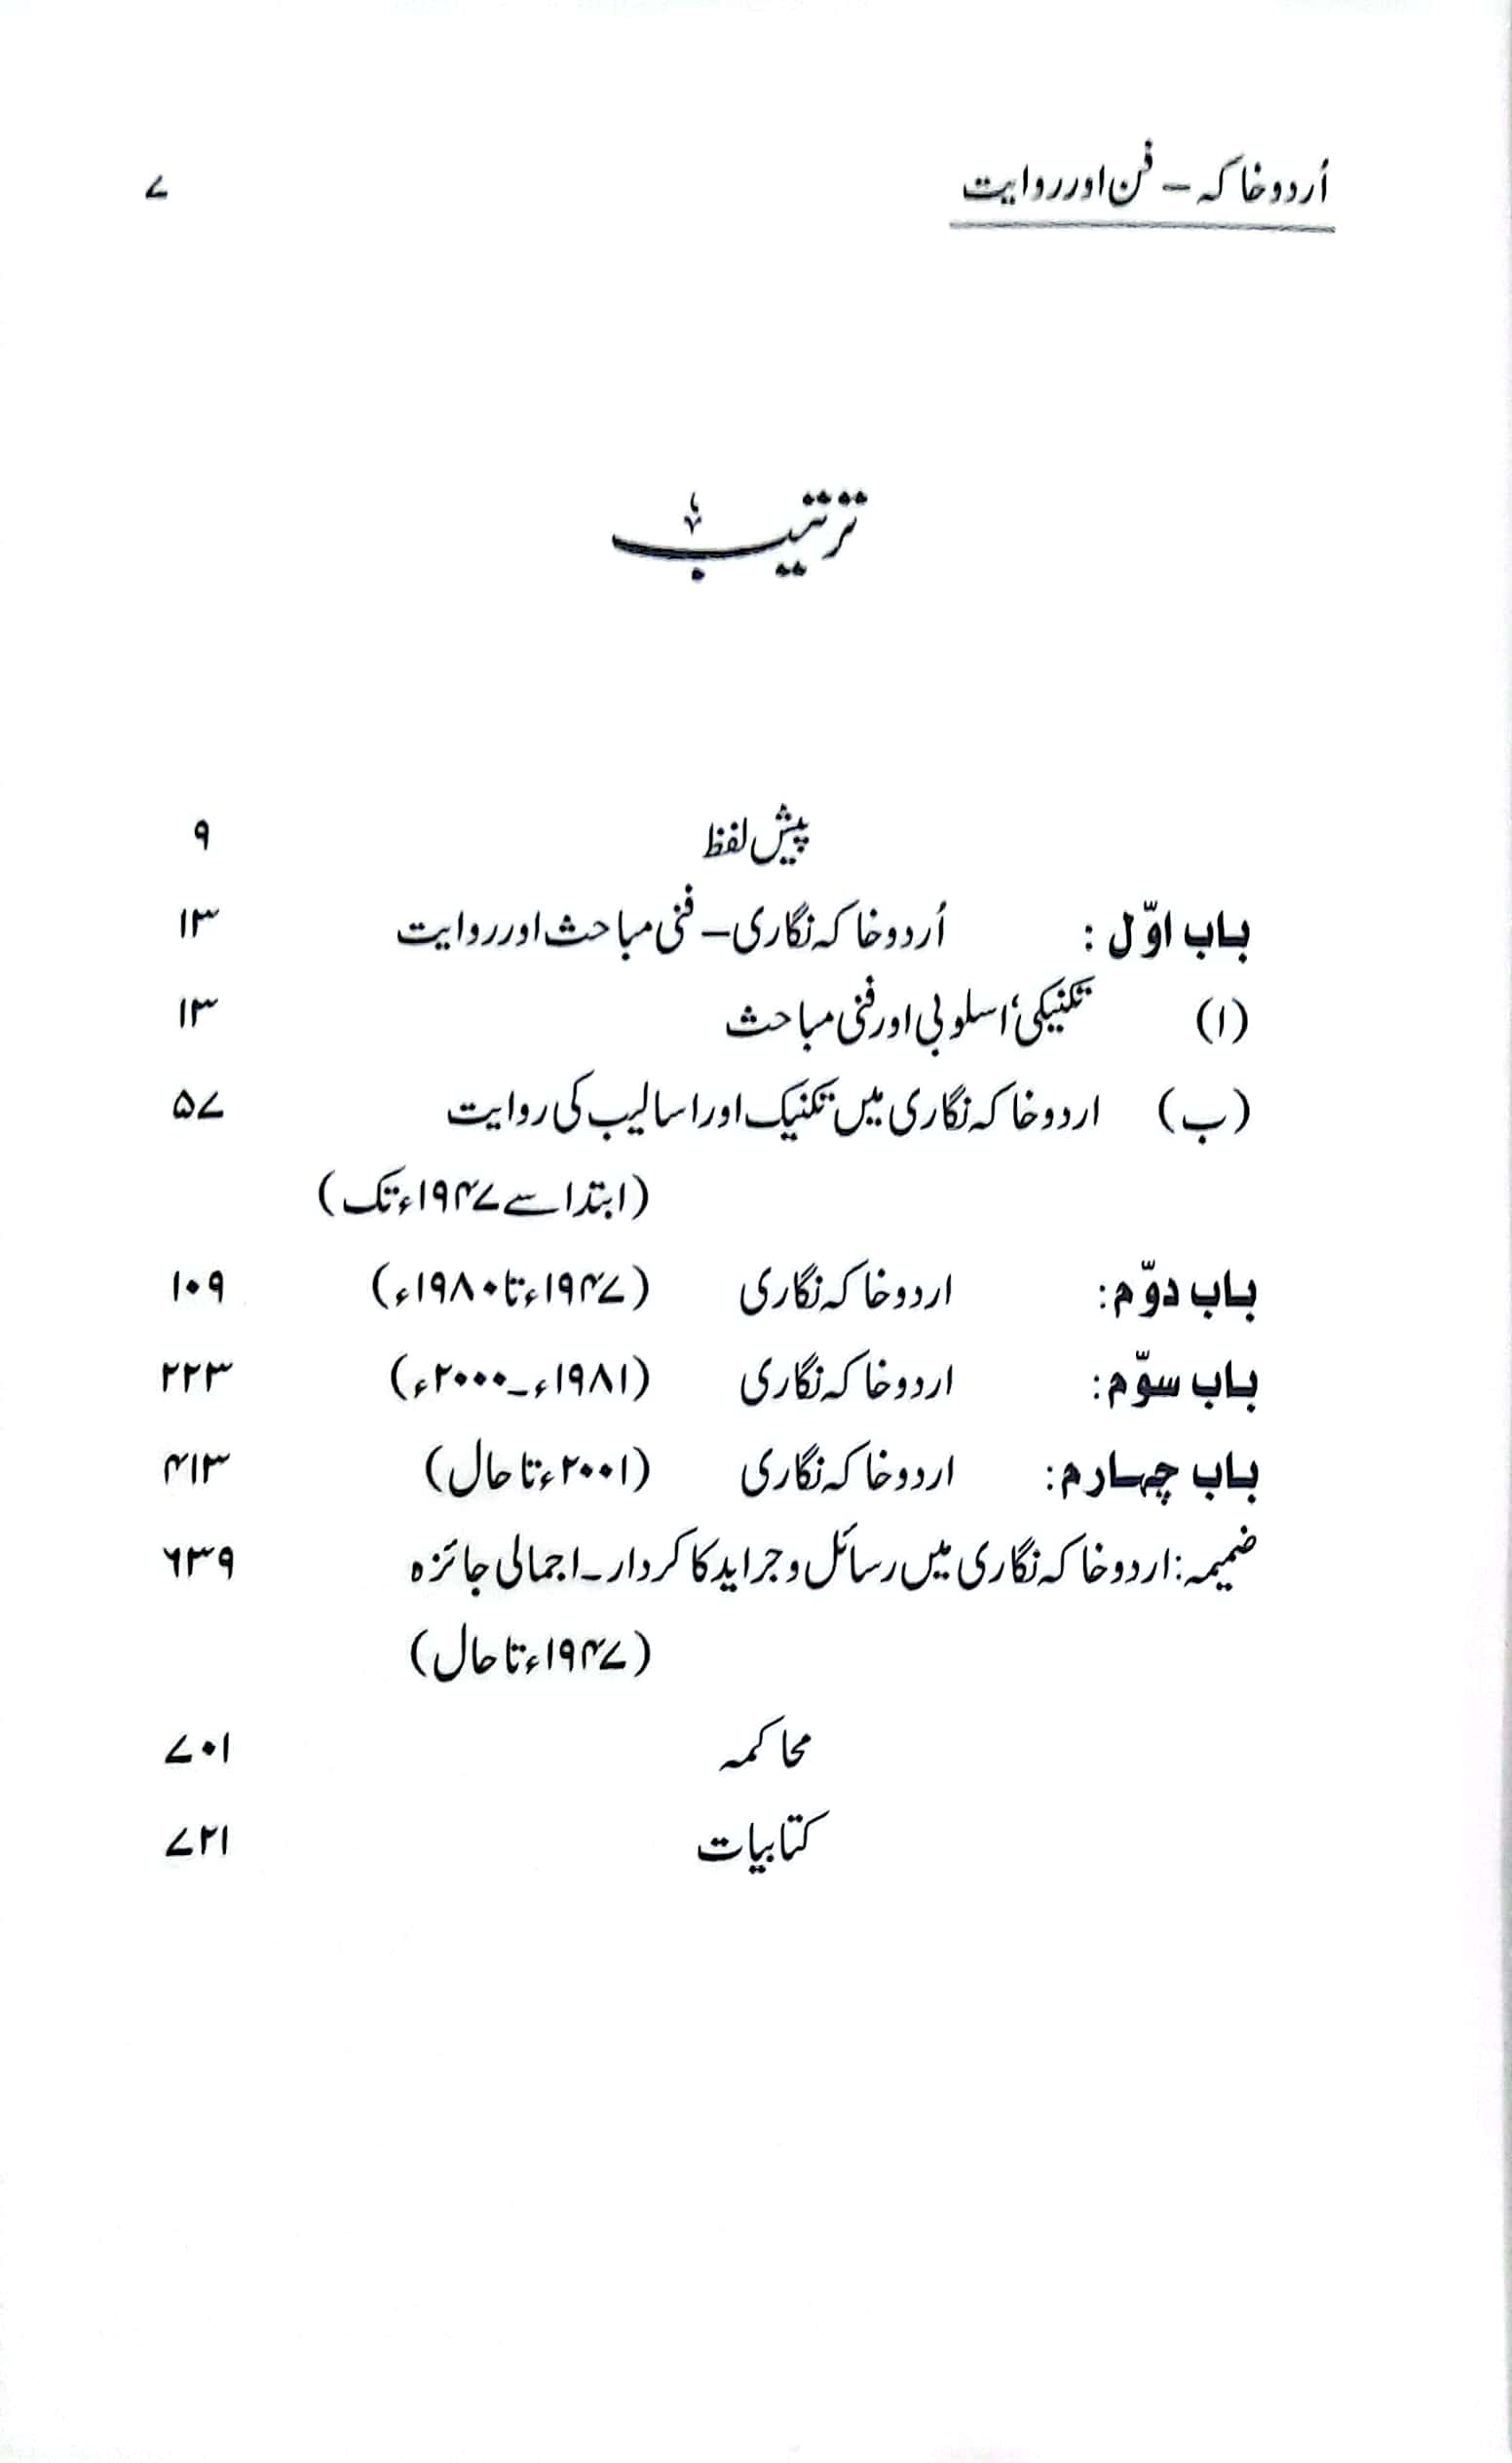 اُردو خاکہ – فن اور روایت ۷
ترتیب
پیش لفظ ۹
باب اوّل : اُردو خاکہ نگاری – فنی مباحث اور روایت ۱۳
(ا) تکنیکی، اسلوبی اور فنی مباحث ۱۳
(ب) اردو خاکہ نگاری میں تکنیک اور اسالیب کی روایت ۵۷
(ابتدا سے ۱۹۴۷ء تک)
باب دوّم: اردو خاکہ نگاری (۱۹۴۷ء تا ۱۹۸۰ء) ۱۰۹
باب سوّم: اردو خاکہ نگاری (۱۹۸۱ء ـ ۲۰۰۰ء) ۲۲۳
باب چہارم: اردو خاکہ نگاری (۲۰۰۱ء تا حال) ۴۱۳
ضمیمہ: اردو خاکہ نگاری میں رسائل و جراید کا کردار۔ اجمالی جائزہ ۶۳۹
(۱۹۴۷ء تا حال)
محاکمہ ۷۰۱
کتابیات ۷۲۱